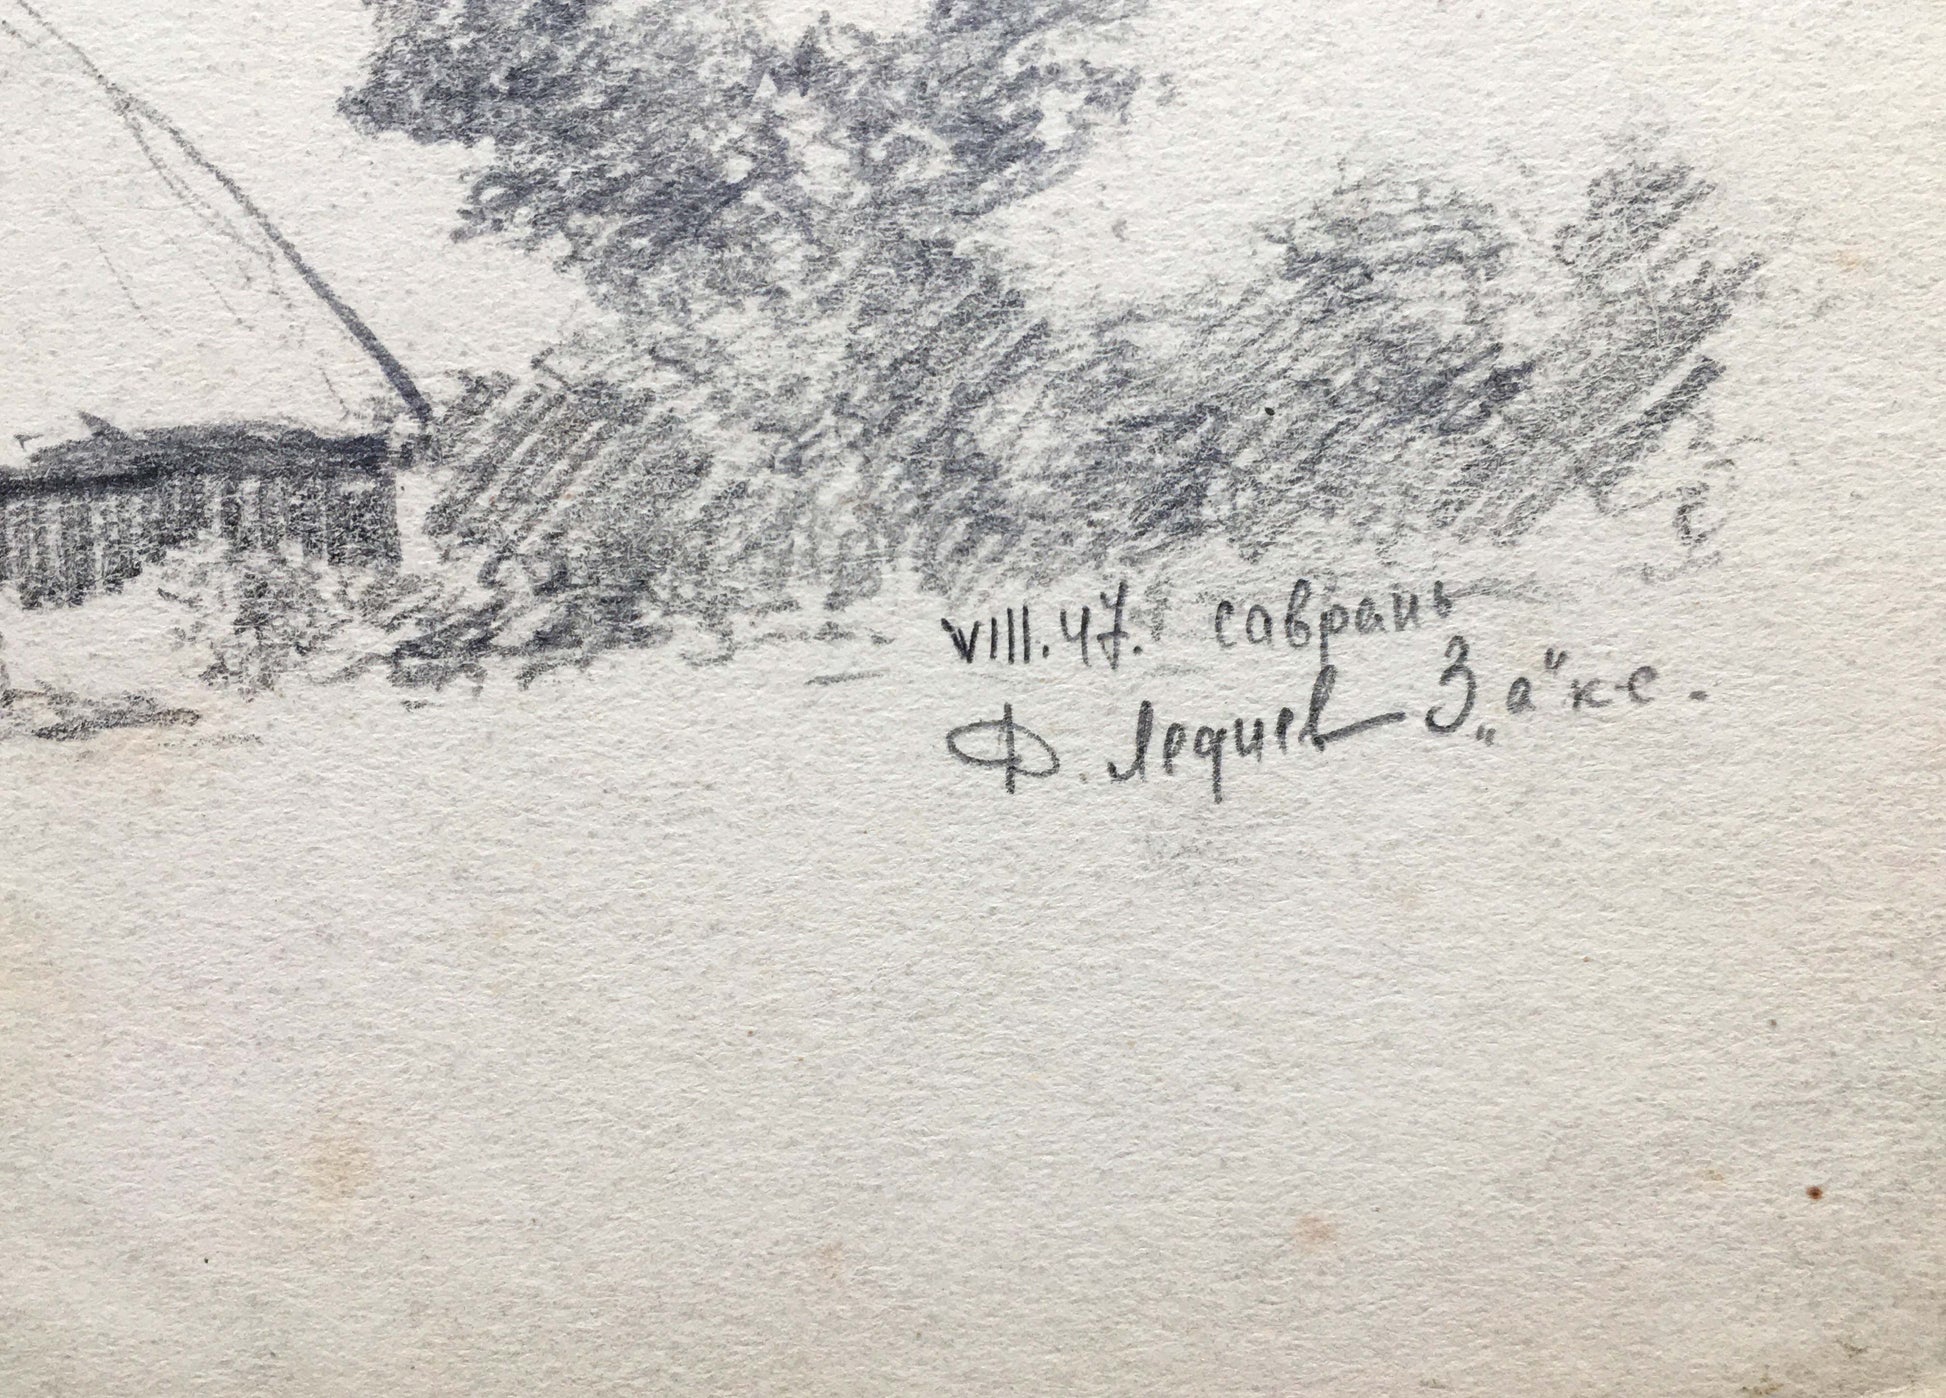 VIII.47. саврань
Ф. Ледиев 3 „а" к-с.